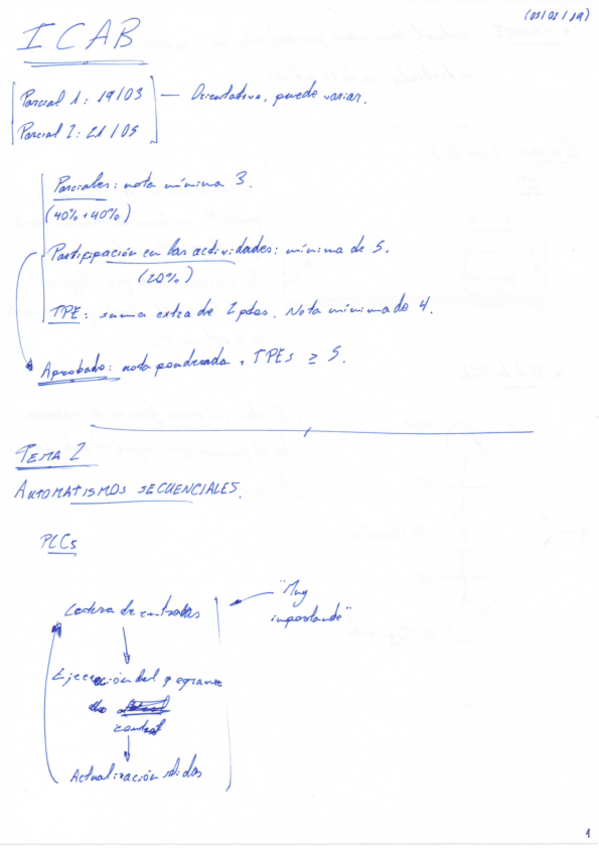 (05/02/19)
ICAB
Parcial 1: 19/03 — Orientativo, puede variar.
Parcial 2: 21/05
Parciales: nota mínima 3.
(40% + 40%)
Participación en las actividades: mínima de 5.
(20%)
TPE: suma extra de 2 ptos. Nota mínima de 4.
Aprobado: nota ponderada + TPEs ≥ 5.
TEMA 2
AUTOMATISMOS SECUENCIALES.
PLCs
"Muy
importante"
Lectura de entradas
Ejecución del programa
de
control
Actualización salidas
1